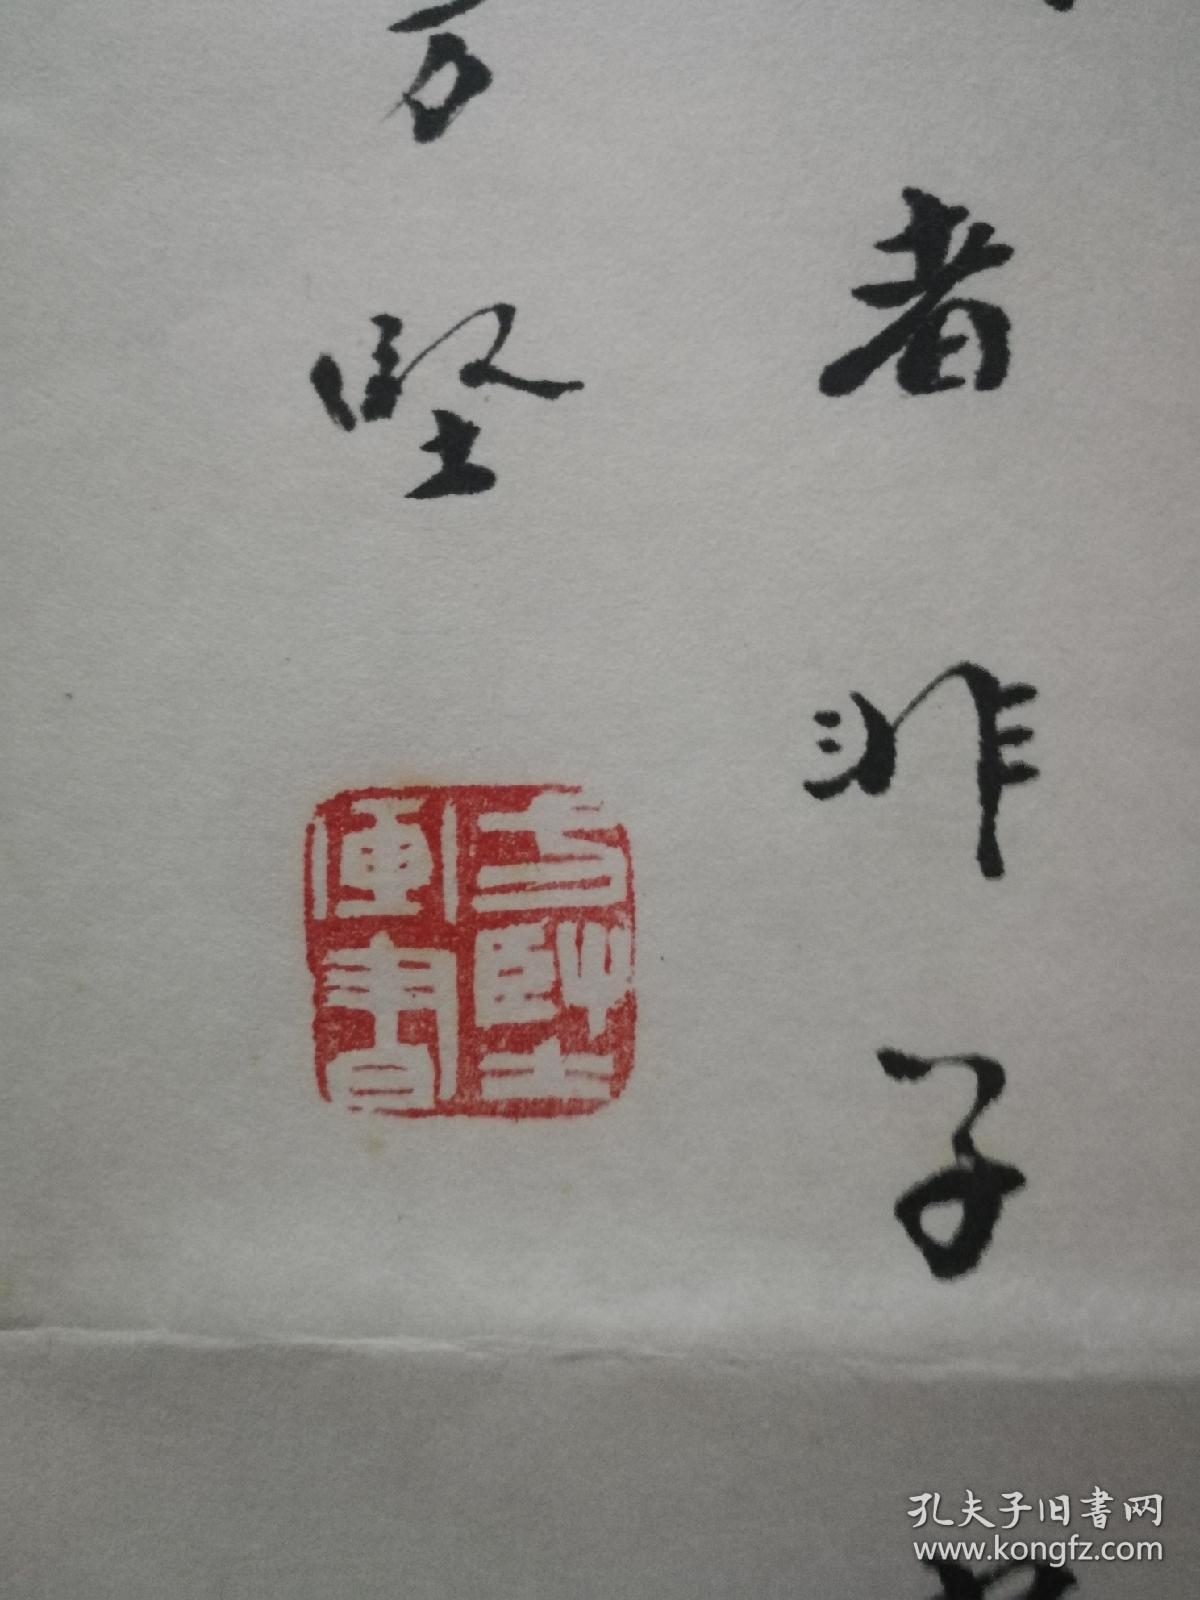 者非子
方堅
方堅
印書
孔夫子旧書网
www.kongfz.com